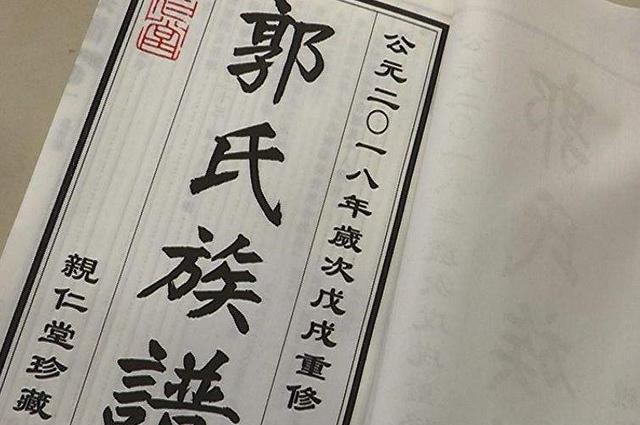 公元二〇一八年歲次戊戌重修
郭氏族譜
親仁堂珍藏